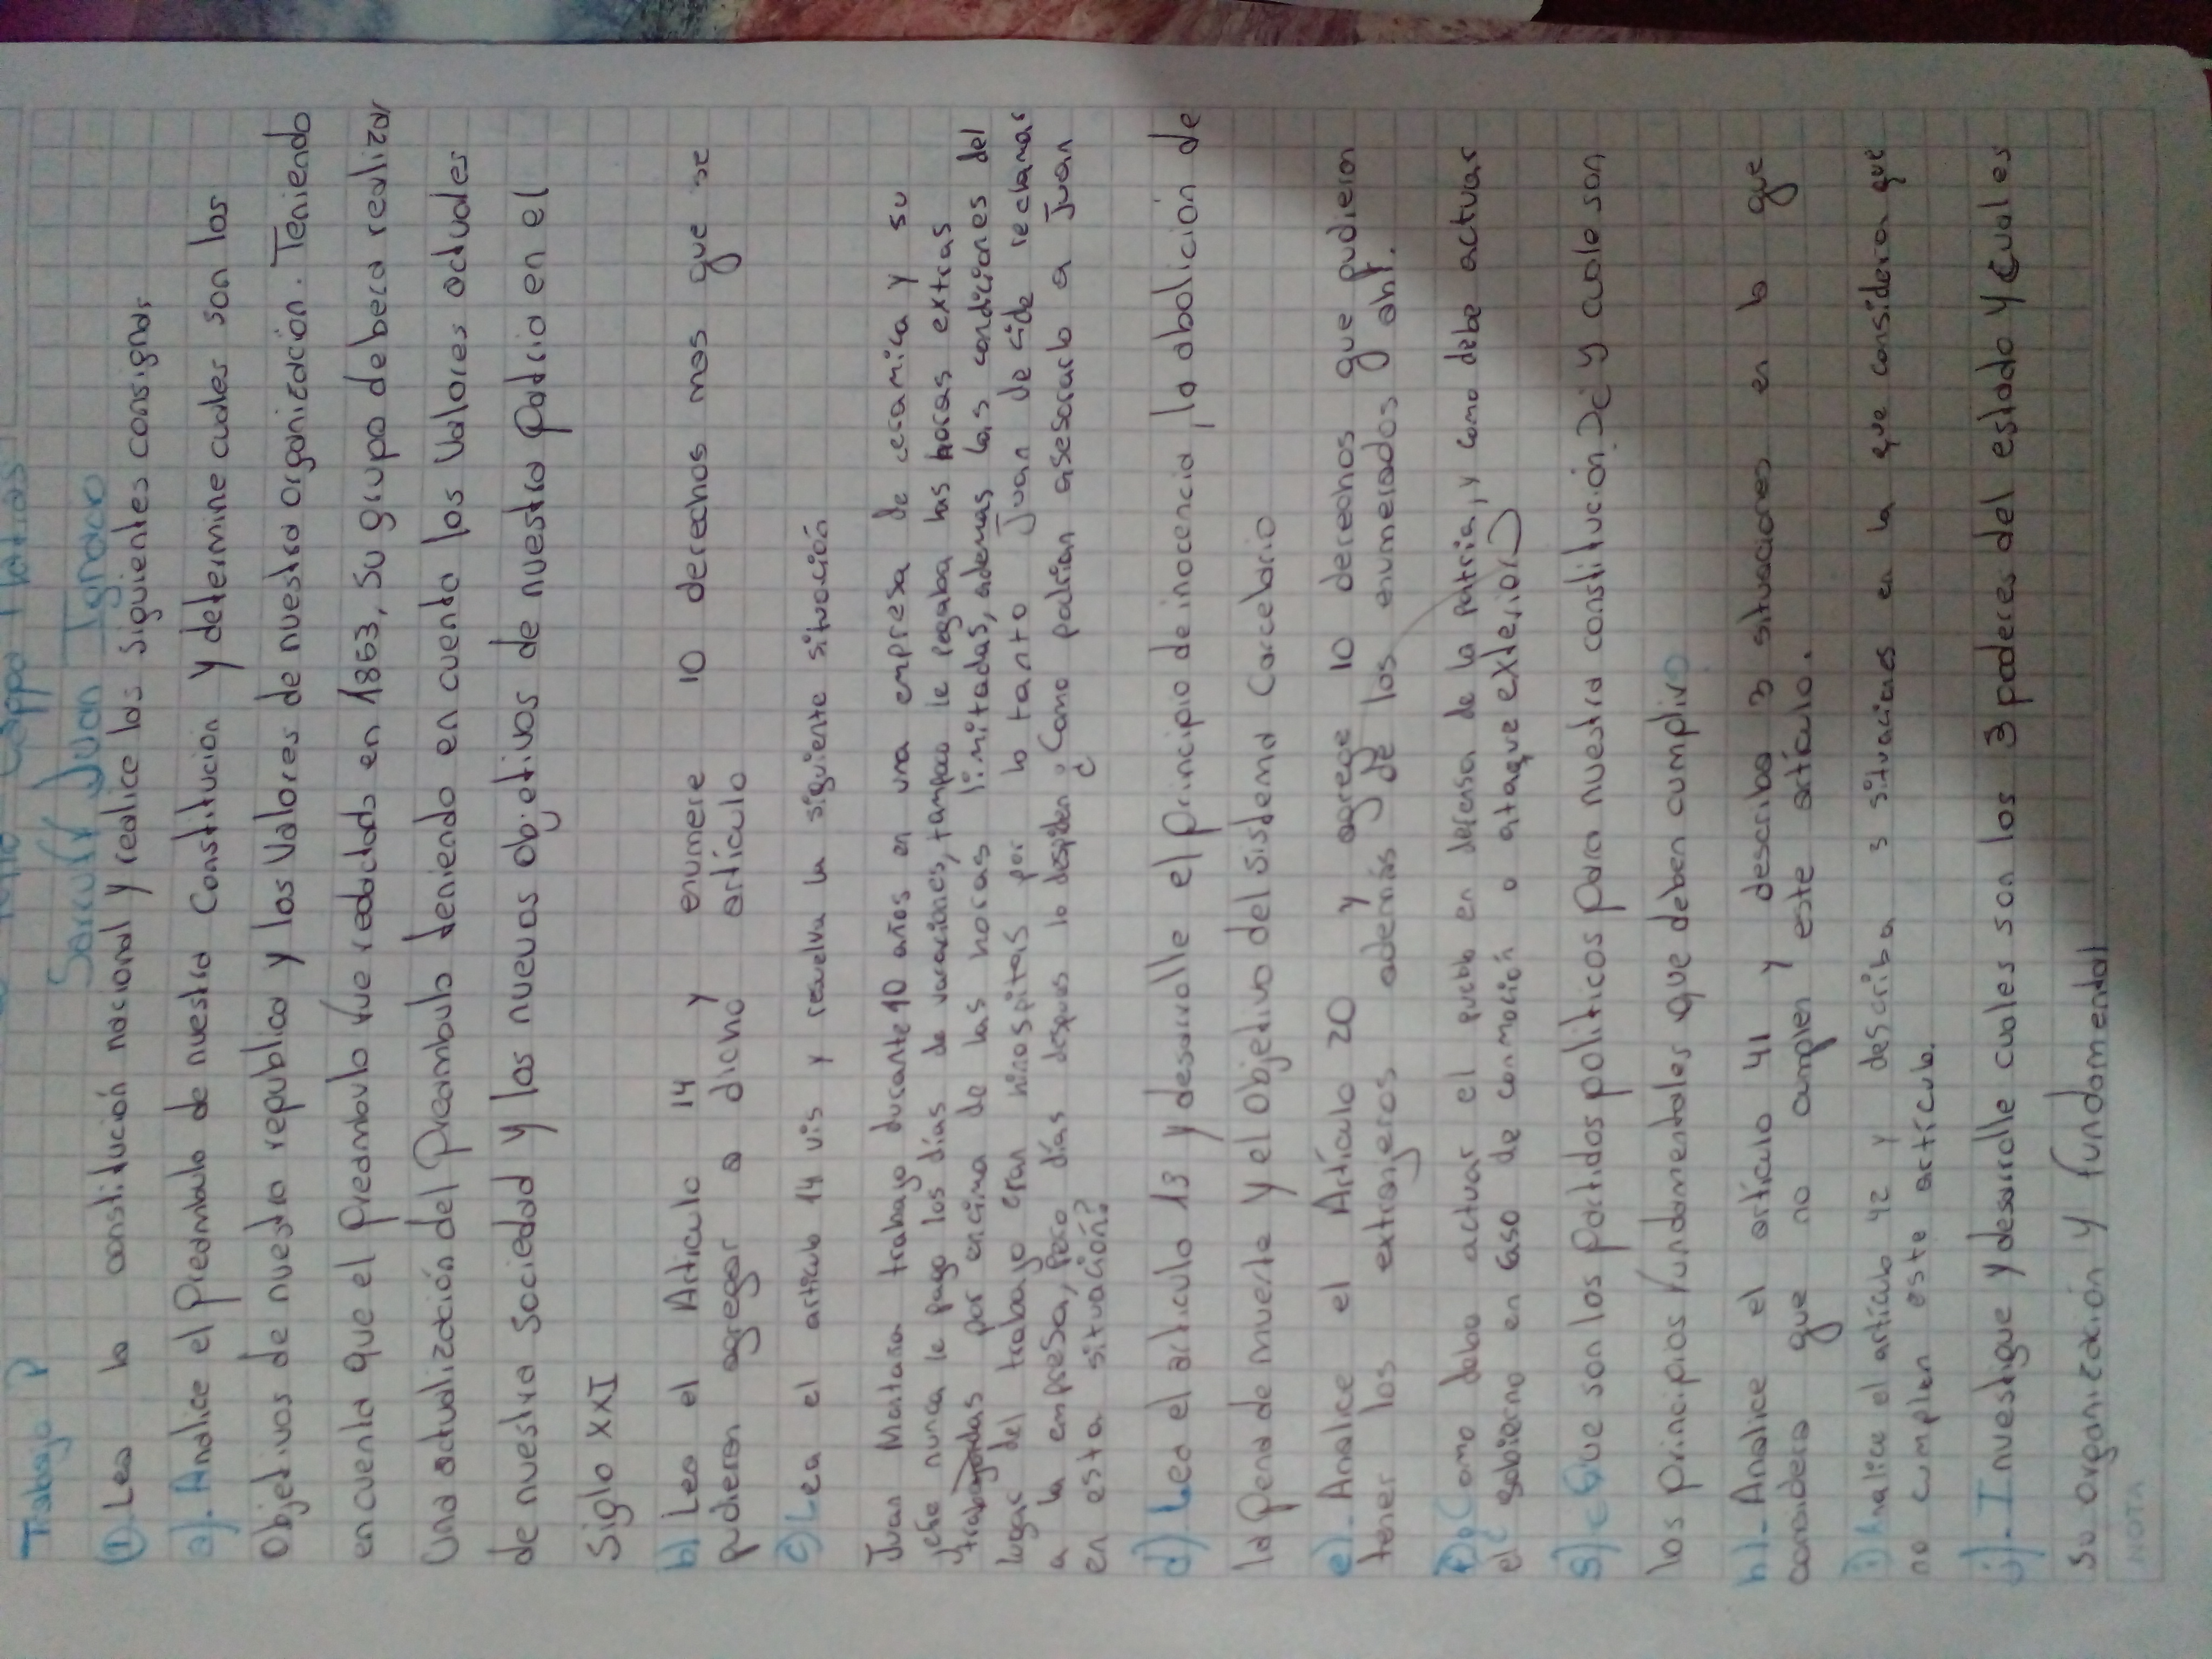 Trabajo P
Cappa Matias
Sarcuff Juan Ignacio
① Lea la constitución nacional y realice las siguientes consignas
a). Analice el Preambulo de nuestra Constitución y determine cuales son los
Objetivos de nuestra republica y los Valores de nuestra organización. Teniendo
en cuenta que el Preambulo fue redactado en 1853, su grupo debera realizar
Una actualización del Preambulo teniendo en cuenta los Valores actuales
de nuestra Sociedad y los nuevos objetivos de nuestra Patria en el
Siglo XXI
b) Lea el Articulo 14 y enumere 10 derechos mas que se
pudieran agregar a dicho artículo
c) Lea el articulo 14 vis y resuelva la siguiente situación
Juan Martañan trabajo durante 10 años en una empresa de ceramica y su
jefe nunca le pago los días de vacaciones, tampoco le pagaba las horas extras
trabajadas por encima de las horas limitadas, ademas las condiciones del
lugar del trabajo eran hinospitas por lo tanto Juan decide reclamar
a la empresa, Poco días despues lo despiden ¿Como podrian asesorarlo a Juan
en esta situación?
d) Lea el articulo 18 y desarrolle el principio de inocencia, la abolicion de
la Pena de muerte y el Objetivo del sistema Carcelario
e). Analice el Artículo 20 y agrege 10 derechos que pudieran
tener los extrangeros además de los enumerados ahí.
f) ¿Como debe actuar el pueblo en defensa de la Patria, y como debe actuar
el gobierno en caso de conmoción o ataque exterior?
g) ¿Que son los Partidos politicos para nuestra constitución? ¿y cuale son
los principios fundamentales que deben cumplir?
h)- Analice el artículo 41 y describa 3 situaciones en la que
considera que no cumplen y este artículo.
i) Analice el artículo 42 y describa 3 situaciones en la que considera que
no cumplen este artículo.
j)- Investigue y desarrolle cuales son los 3 poderes del estado y Cuales
su organización y fundamental
NOTA